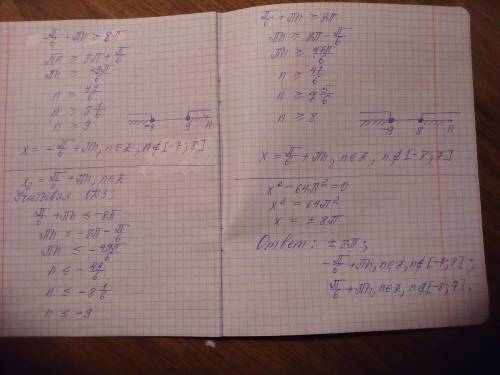 -π/6 + πn ≥ 8π
πn ≥ 8π + π/6
πn ≥ 49π/6
n ≥ 49/6
n ≥ 8 1/6
n ≥ 9
9 n
x = -π/6 + πn, n∈Z, n∉[-7; 8]
x₂ = π/6 + πn, n∈Z
Учитывая ОДЗ:
π/6 + πn ≤ -8π
πn ≤ -8π - π/6
πn ≤ -49π/6
n ≤ -49/6
n ≤ -8 1/6
n ≤ -9
π/6 + πn ≥ 8π
πn ≥ 8π - π/6
πn ≥ 47π/6
n ≥ 47/6
n ≥ 7 5/6
n ≥ 8
-9 8 n
x = π/6 + πn, n∈Z, n∉[-8; 7]
x² - 64π² = 0
x² = 64π²
x = ± 8π
Ответ: ± 8π;
-π/6 + πn, n∈Z, n∉[-7; 8];
π/6 + πn, n∈Z, n∉[-8; 7].